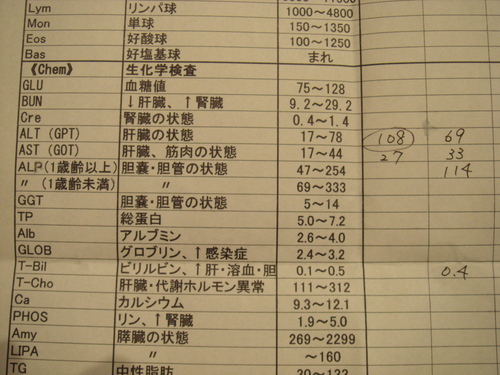 Lym リンパ球 1000～4800
Mon 単球 150～1350
Eos 好酸球 100～1250
Bas 好塩基球 まれ
《Chem》 生化学検査
GLU 血糖値 75～128
BUN ↓肝臓、↑腎臓 9.2～29.2
Cre 腎臓の状態 0.4～1.4
ALT (GPT) 肝臓の状態 17～78 108 69
AST (GOT) 肝臓、筋肉の状態 17～44 27 33
ALP(1歳齢以上) 胆嚢・胆管の状態 47～254 114
〃 (1歳齢未満) 〃 69～333
GGT 胆嚢・胆管の状態 5～14
TP 総蛋白 5.0～7.2
Alb アルブミン 2.6～4.0
GLOB グロブリン、↑感染症 2.4～3.2
T-Bil ビリルビン、↑肝・溶血・胆 0.1～0.5 0.4
T-Cho 肝臓・代謝ホルモン異常 111～312
Ca カルシウム 9.3～12.1
PHOS リン、↑腎臓 1.9～5.0
Amy 膵臓の状態 269～2299
LIPA 〃 ～160
TG 中性脂肪 30～133